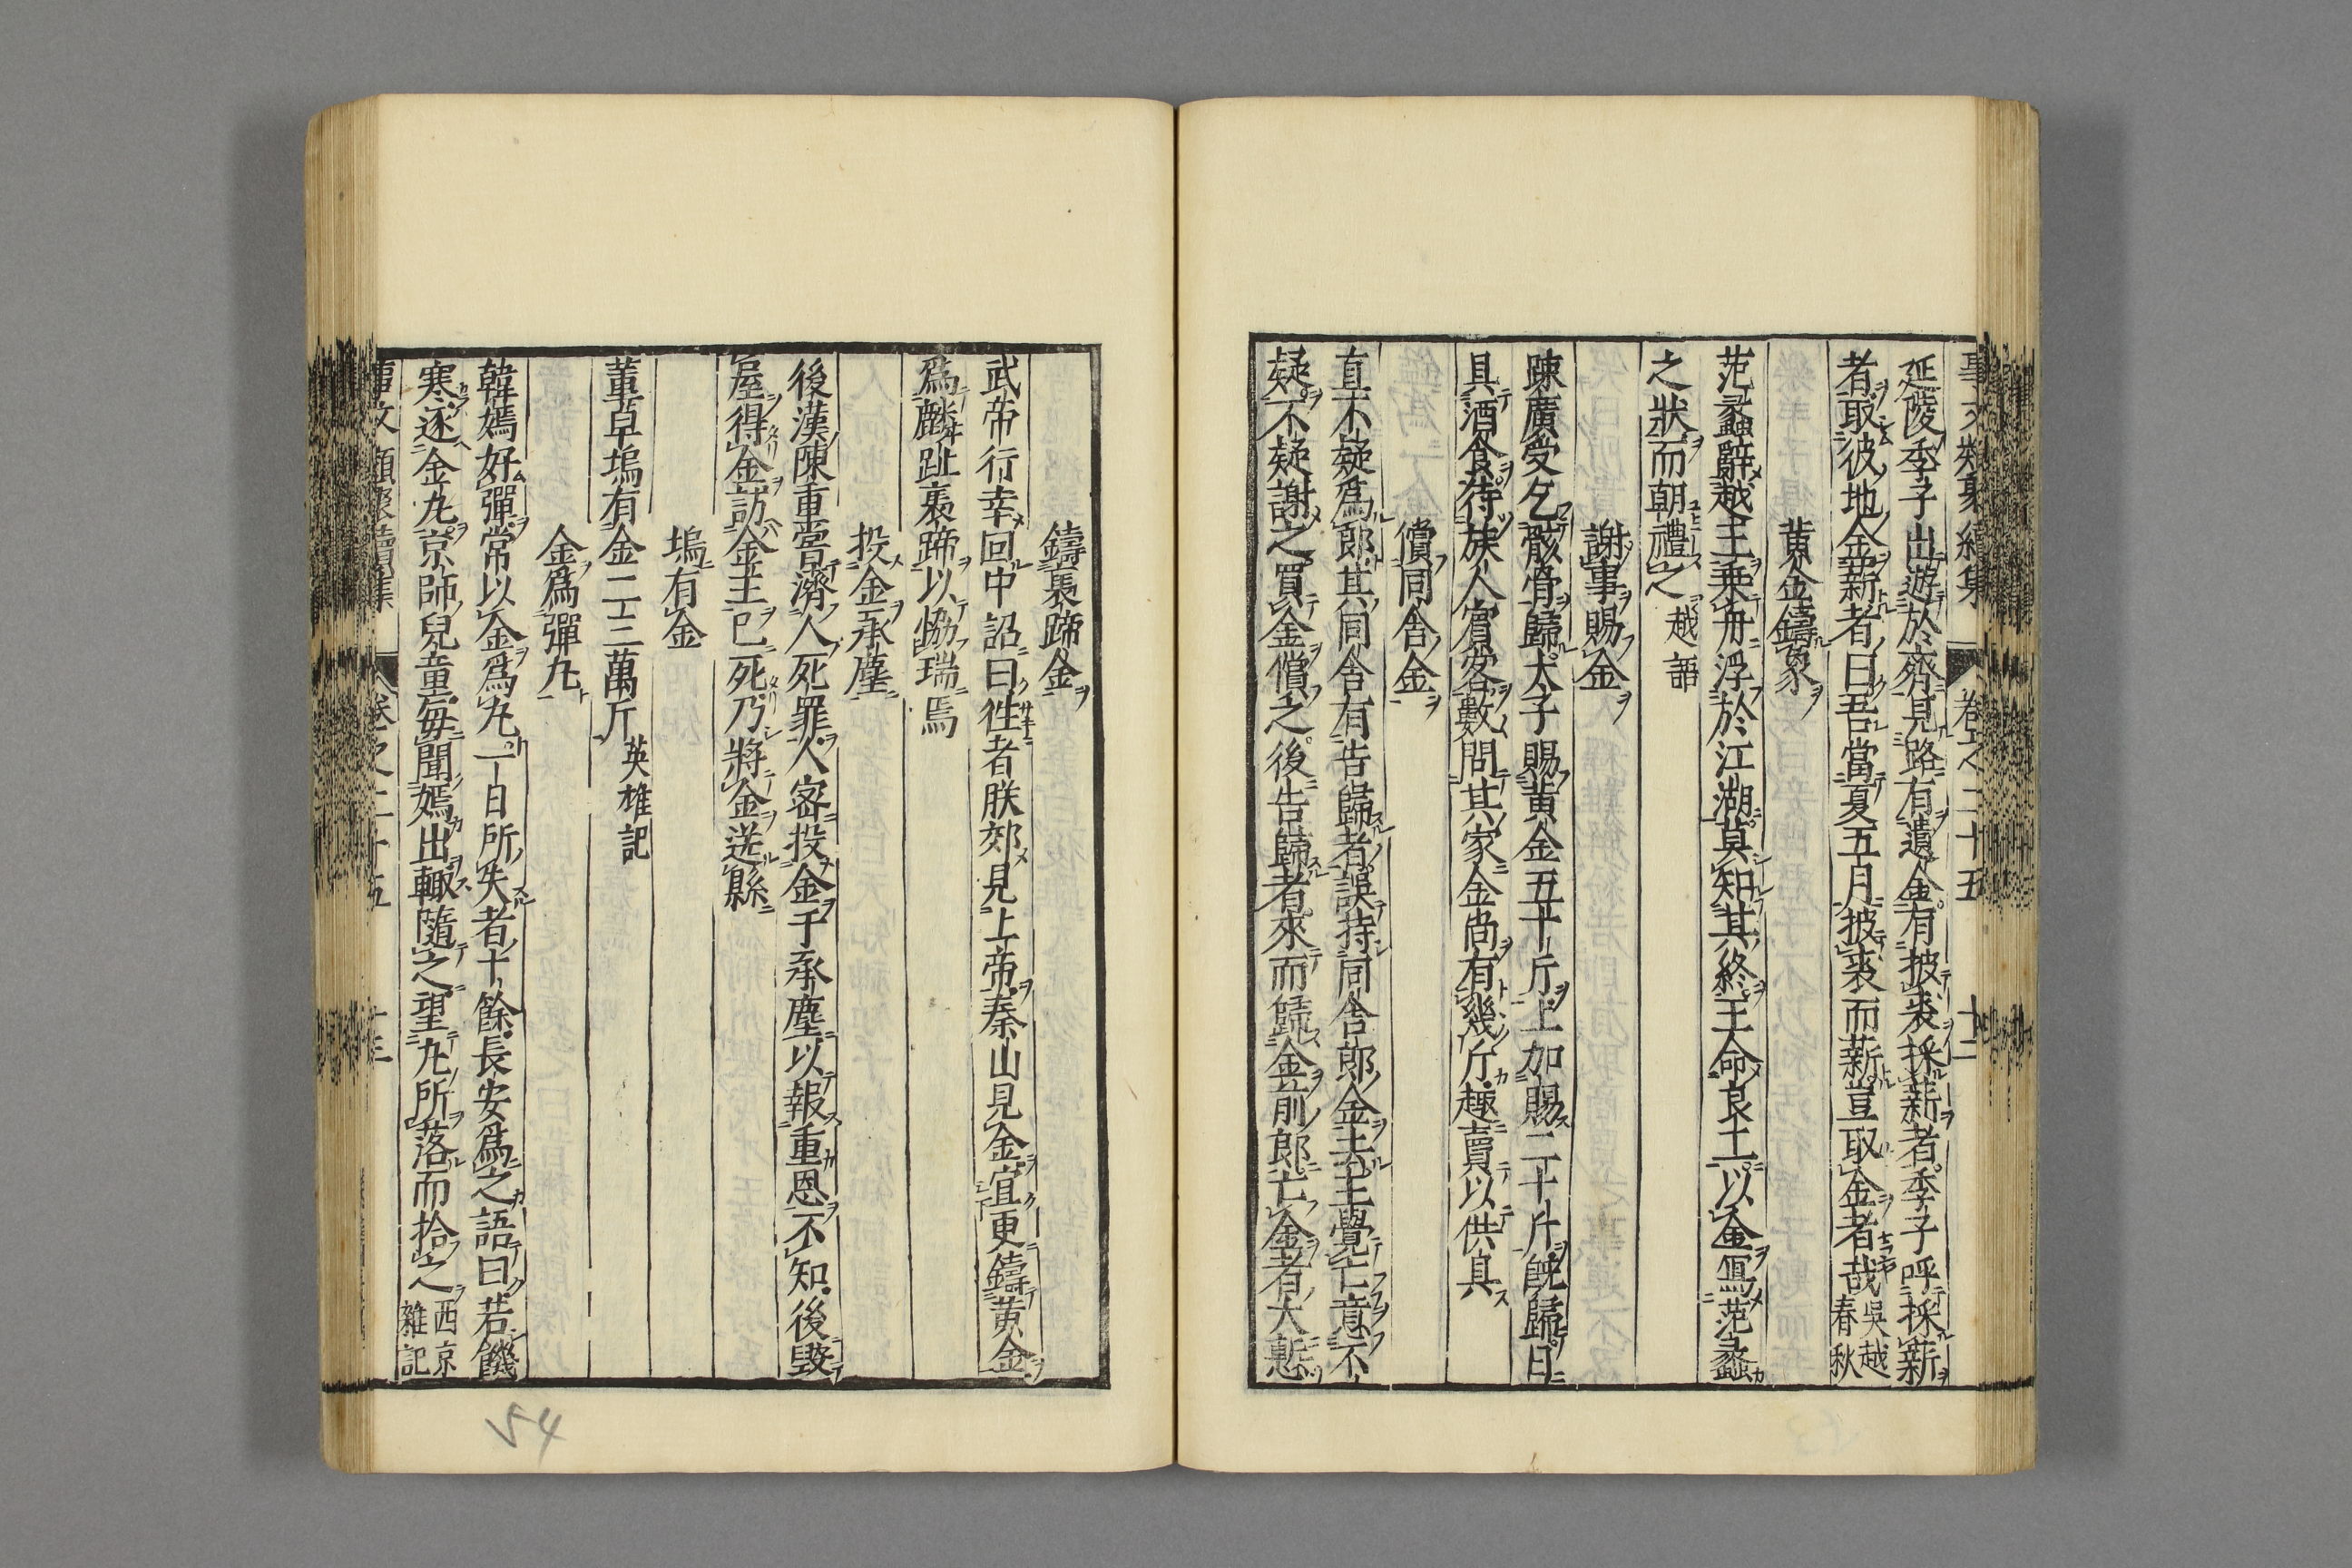 事文類聚續集 卷之二十五 十二
延陵季子出遊於齊見路有遺金有披裘採薪者季子呼採薪
者取彼地金薪者曰吾當夏五月披裘而薪豈取金者哉吳越春秋
黃金鑄象
范蠡辭越王乘舟浮於江湖莫知其終王命良工以金寫范蠡
之狀而朝禮之越語
謝事賜金
踈廣受乞骸骨歸太子賜黃金五十斤上加賜二十斤既歸日
具酒食待族人賓客數問其家金尚有幾斤趣賣以供具
償同舍金
直不疑爲郎其同舍有告歸者誤持同舍郎金去主覺亡意不
疑不疑謝之買金償之後告歸者來而歸金前郎亡金者大慙
鑄裹蹄金
武帝行幸回中詔曰徃者朕郊見上帝泰山見金宜更鑄黃金
爲麟趾裹蹄以恊瑞焉
投金承塵
後漢陳重嘗濟人死罪人密投金于承塵以報重恩不知後毀
屋得金訪金主已死乃將金送縣
塢有金
董卓塢有金二三萬斤英雄記
金爲彈丸
韓嫣好彈常以金爲丸一日所失者十餘長安爲之語曰若饑
寒逐金丸京師兒童每聞嫣出輙隨之望丸所落而拾之西京雜記
事文類聚續集 卷之二十五 十三
54